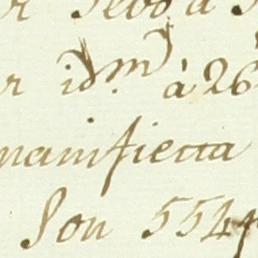 r Sebo a
r id.m à 26
manifiecta
Son 554